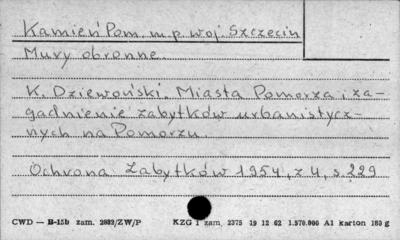 Kamień Pom. m. p. woj. Szczecin
Mury obronne.
K. Dziewoński. Miasta Pomorza i za-
gadnienie zabytków urbanistycz-
nych na Pomorzu.
Ochrona Zabytków 1954, z 4, s. 229
CWD — B-15b zam. 2882/ZW/P KZG 1 zam. 2375 19 12 62 1.570.000 A1 karton 180 g